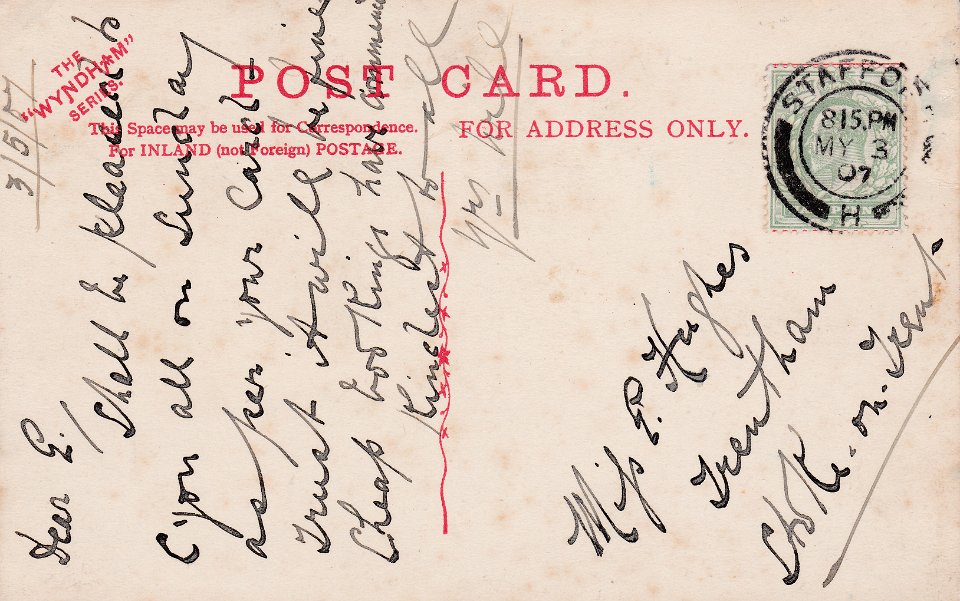 THE
"WYNDHAM"
SERIES.
POST CARD.
This Space may be used for Correspondence.
For INLAND (not Foreign) POSTAGE.
FOR ADDRESS ONLY.
STAFFORD
8 15.PM
MY 3
07
H
3/5/7
Dear G/
Shall be pleased to
C you all on Sunday
as per your card
Trust it will be fine
Cheap bookings have commenced
Kindest to all
Yrs
Miss P. Hughes
Trentham
Stoke-on-Trent